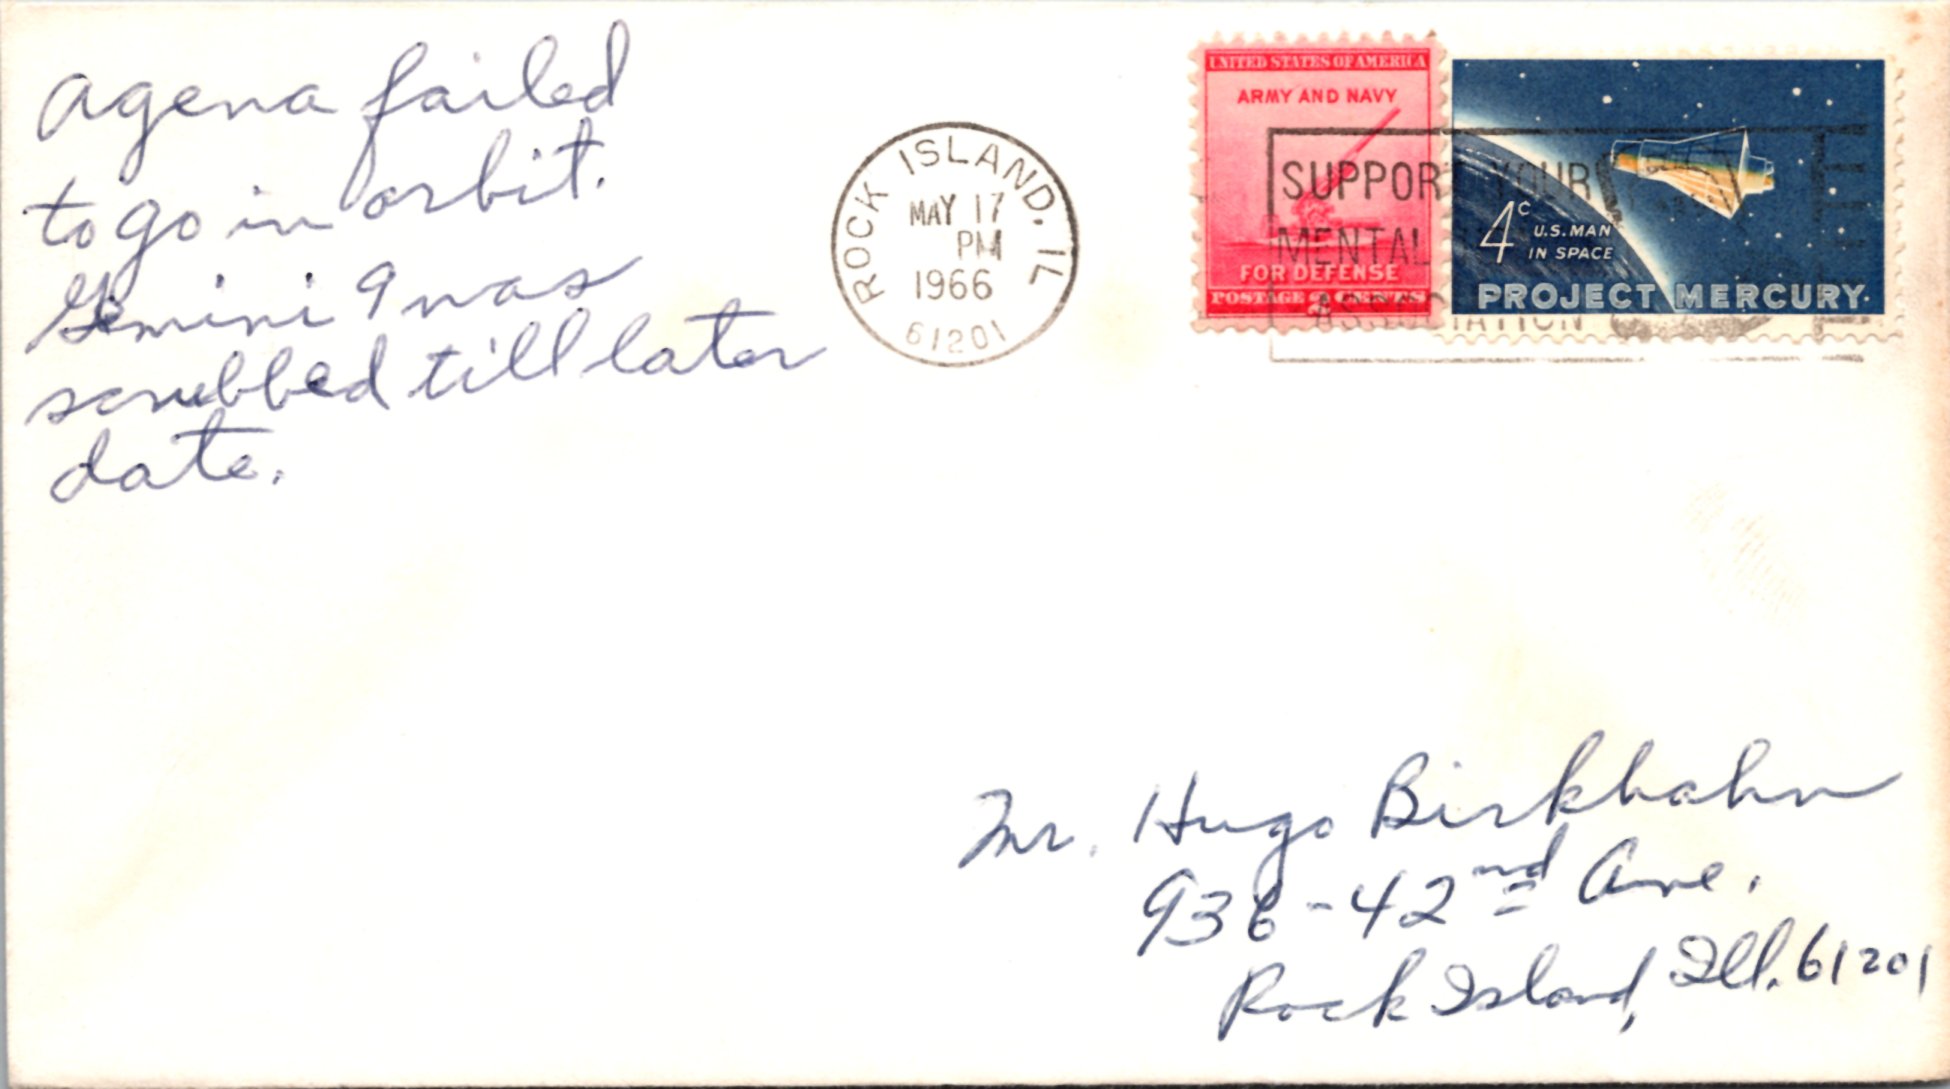 Agena failed
to go in orbit.
Gemini 9 was
scrubbed till later
date.
ROCK ISLAND, IL
MAY 17
PM
1966
61201
UNITED STATES OF AMERICA
ARMY AND NAVY
FOR DEFENSE
POSTAGE 2 CENTS
4c U.S. MAN
IN SPACE
PROJECT MERCURY
SUPPORT YOUR
MENTAL
ASSOCIATION
Mr. Hugo Birkhahn
936-42nd Ave.
Rock Island, Ill. 61201